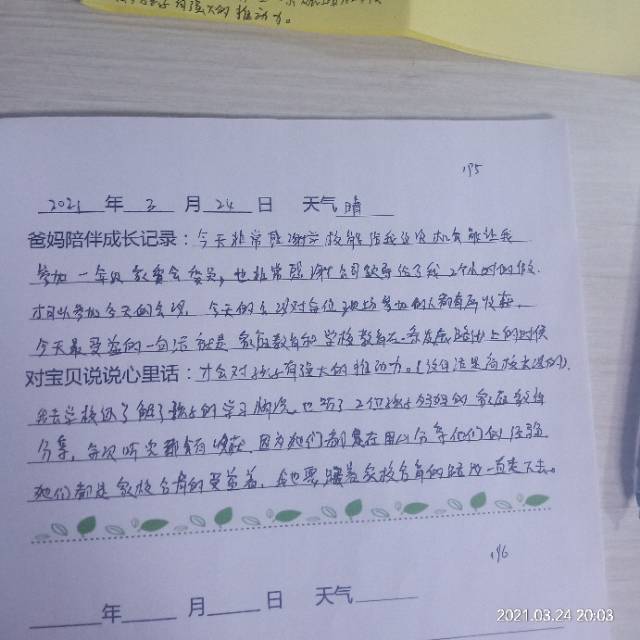 强大的推动力。
195
2021 年 3 月 24 日 天气 晴
爸妈陪伴成长记录：今天非常感谢学校能给我这次机会能让我
参加一年级家委会委员，也非常感谢公司领导给了我2个小时的假.
才可以参加今天的会议. 今天的会议对每位现场参加的人都有所收获.
今天最受益的一句话就是家庭教育和学校教育在一条发展路出上的时候
对宝贝说说心里话：才会对孩子有强大的推动力。(这句话是
我去学校了解了孩子的学习 也听了2位孩子妈妈的家庭教育
分享，每次听完都有收获. 因为她们都是在用心分享他们的经验
她们都是家校合育的受益者. 我也要跟着家校合育的 一直走下去。
196
年 月 日 天气
2021.03.24 20:03